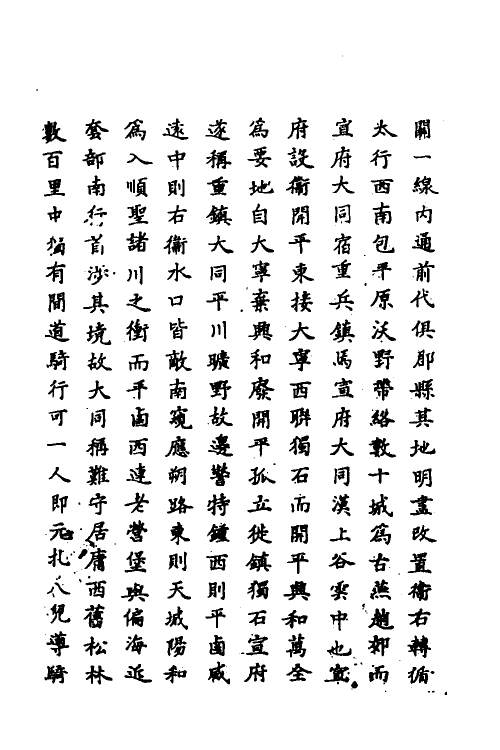 關一線內通前代俱郡縣其地明盡改置衞右轉循
太行西南包平原沃野帶絡數十城爲古燕趙郊而
宣府大同宿重兵鎮焉宣府大同漢上谷雲中也宣
府設衞開平東接大寧西聯獨石而開平興和萬全
爲要地自大寧棄興和廢開平孤立徙鎮獨石宣府
遂稱重鎮大同平川曠野故邊警特鍾西則平鹵威
遠中則右衞水口皆敵南窺應朔路東則天城陽和
爲入順聖諸川之衝而平鹵西連老營堡與偏海近
套部南行首涉其境故大同稱難守居庸西舊松林
數百里中有間道騎行可一人即元札八兒導騎